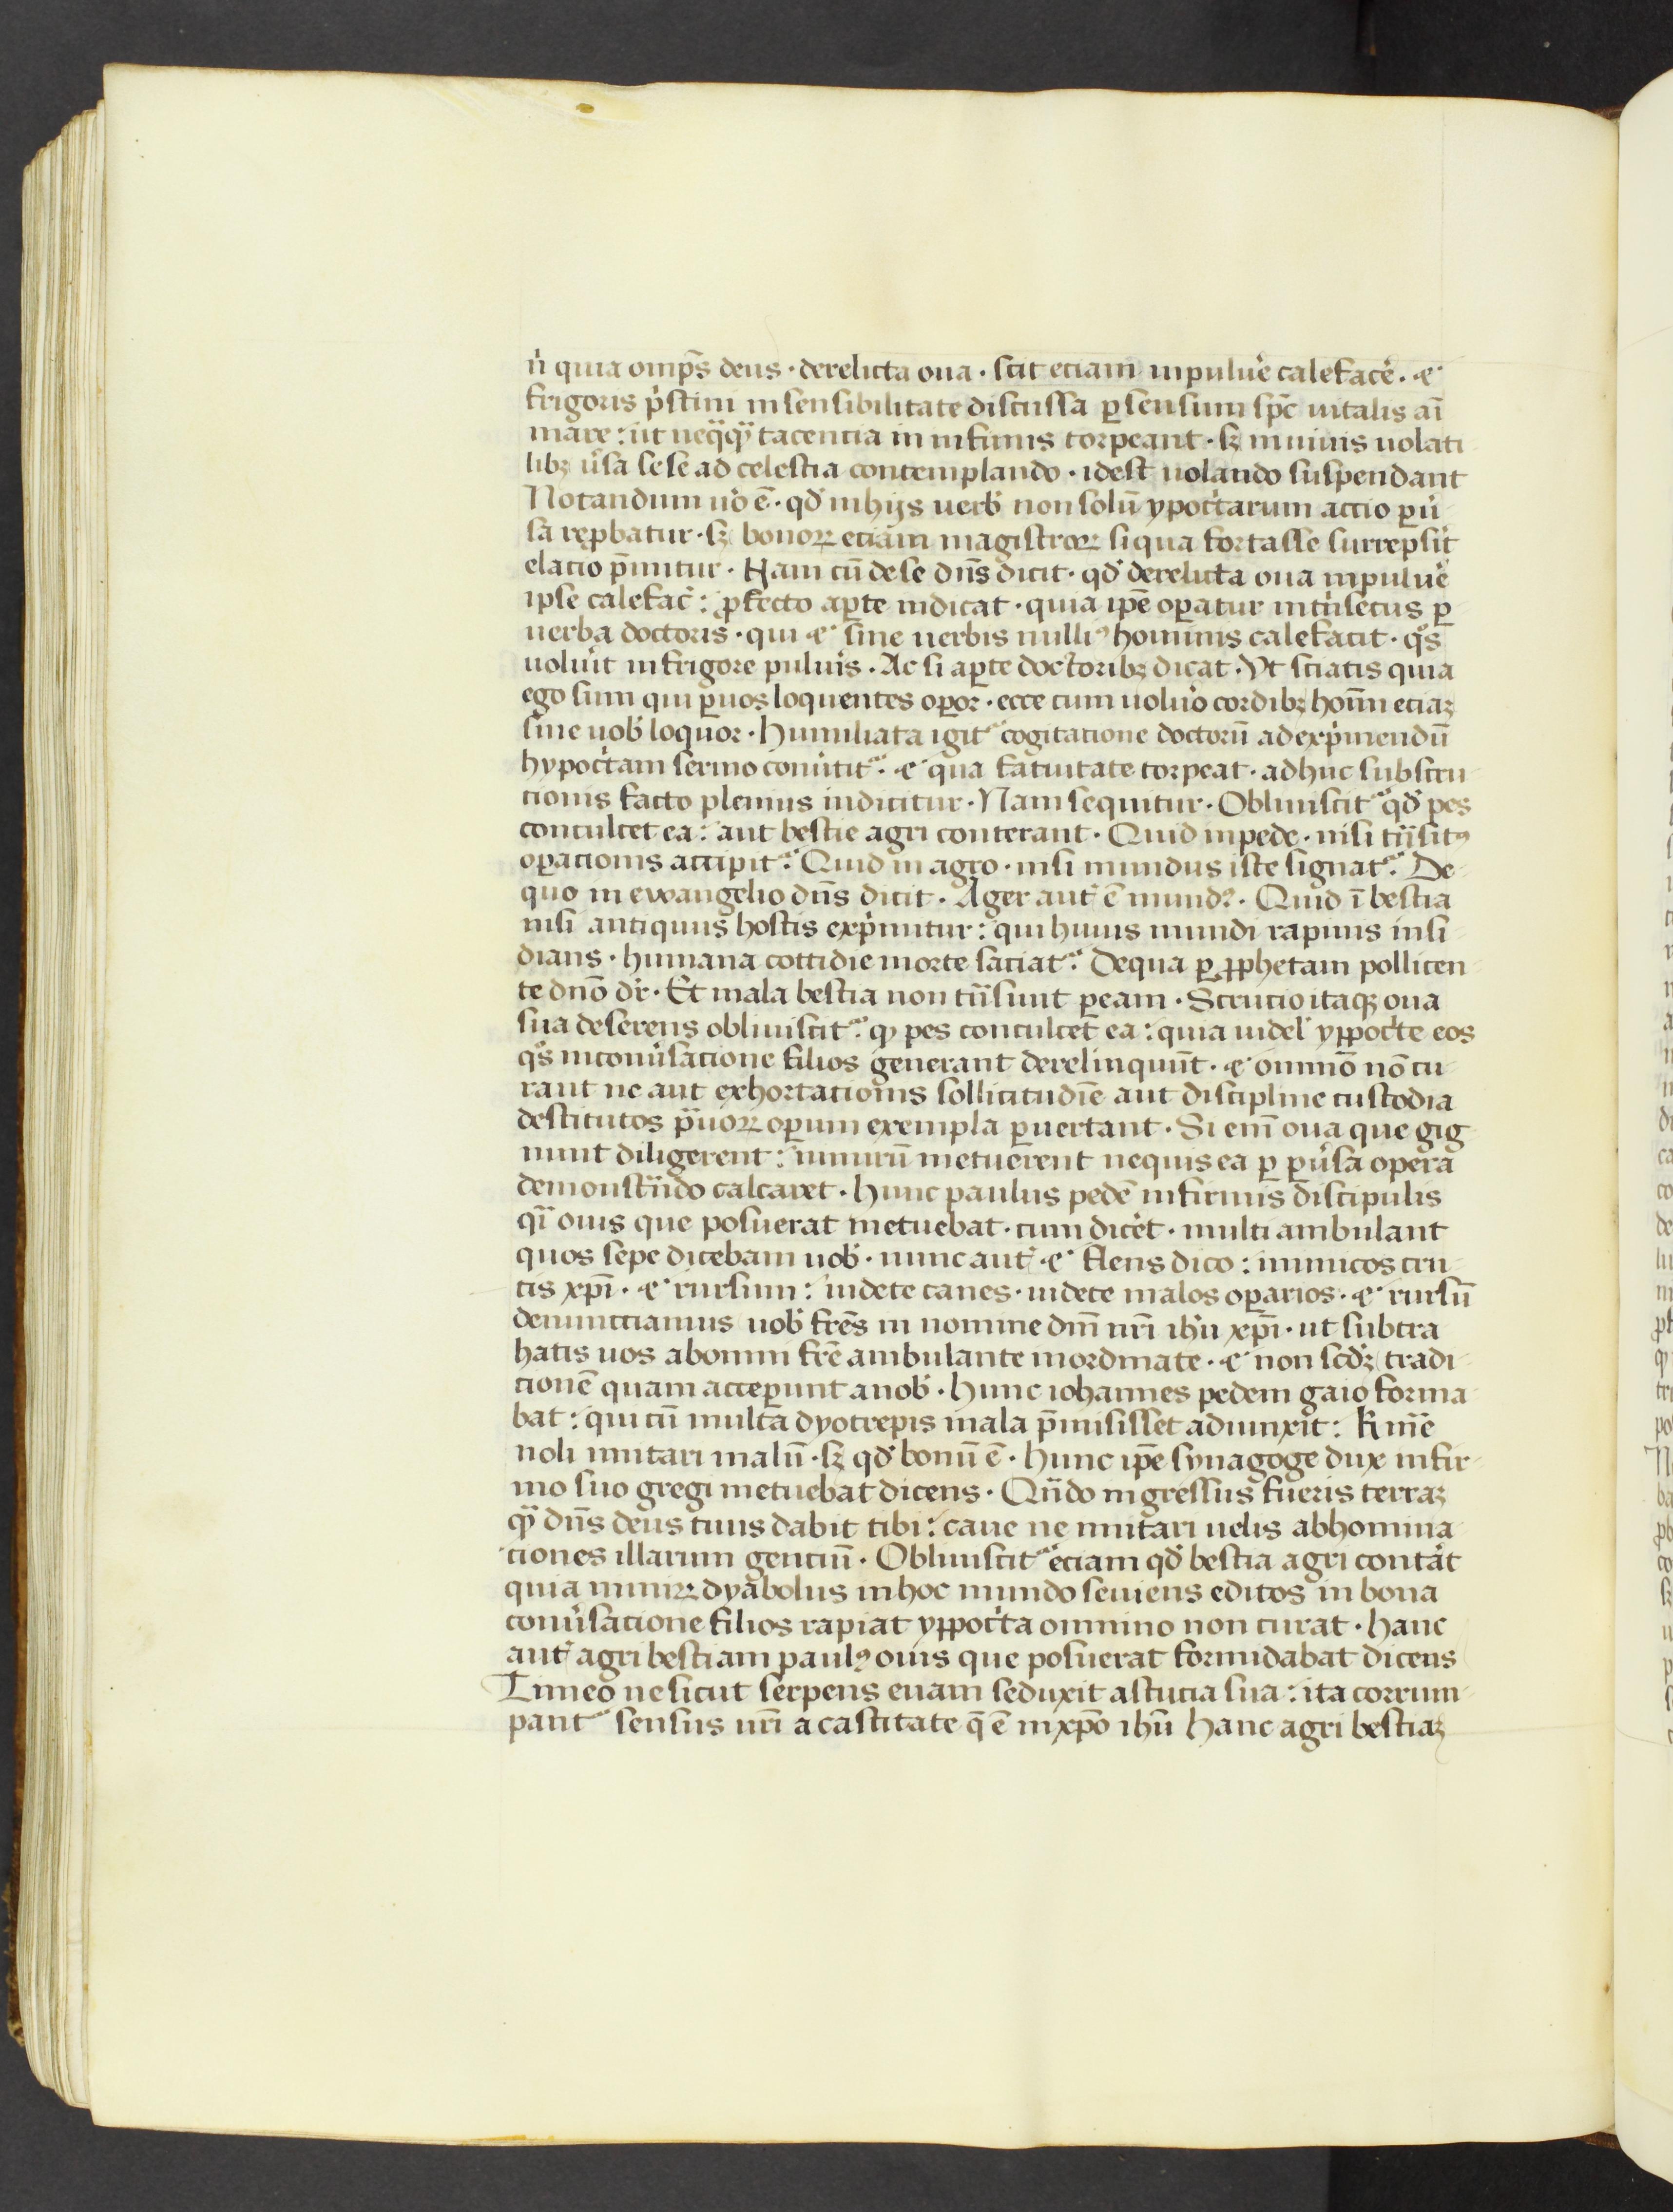 n̍ quia omp̄s deus · derelicta oua · scit eciam inpuluē calefacē · ⁊
frigoris p̍stini insensibilitate discussa ꝑsensum sp̄c uitalis aī
mare : ut neq̈q̈ iacencia in infimis torpeant · sꝫ in uiuis uolati
libꝫ u̓sa sese ad celestia contemplando · idest uolando suspendant
Notandum uo̓ ē · qd̓ inhijs uerb̓ nonsolū ypoc̓tarum accio ꝑu̓
sa rep̱batur · sꝫ bonoꝝ eciam magistroꝝ siqua fortasse surrepsit̓
elacio p̄mitur · Nam cū dese dn̄s dicit · qd̓ derelicta oua inpuluē
ipse calefac̓ : ꝓfecto aꝑte indicat · quia ip̄e oꝑatur int̓nsecus ꝑ
uerba doctoris · qui ⁊ sine uerbis nulliꝰ hominis calefacit · q̊s
uolu̓it infrigore pulu̓is · Ac si aꝑte doctoribꝫ dicat · Vt sciatis quia
ego sum qui ꝑuos loquentes oꝑor · ecce cum uolu̓o cordibꝫ hoīm eciaꝫ
sine uob̓ loquor · Humiliata igit᷑ cogitacione doctorū adexp̓mendū
hypoc̓tam sermo conu̓tit᷑ · ⁊ qua fatuitate torpeat · adhuc subscru
cionis facto plenius indicitur · Nam sequitur · Obliuiscit᷑ qd̓ pes
conculcet ea : aut bestie agri conterant · Quid inpede · nisi t̄nsitꝰ
oꝑacionis accipit᷑ · Quid in agro · nisi mundus iste signat᷑ · De
quo in ewangelio dn̄s dicit · Ager aut̄ ē mundꝰ · Quid ī bestia
nisi antiquus hostis exp̓mitur : qui huius mundi rapinis insi
dians · humana cottidie morte saciat᷑ · Dequa ꝑ ꝓphetam pollicen
te dn̄o dr̄ · Et mala bestia non t̄nsiunt ꝑeam · Strucio itaqꝫ oua
sua deserens obliuiscit᷑ · ꝙ pes conculcet ea : quia uidel̓ yppoc̓te eos
q̊s inconu̓sacione filios generant derelinquūt · ⁊ omnīo nō cu
rant ne aut exhortacionis sollicitudīe aut discipline custodia
destitutos p̈uoꝝ oꝑum exempla ꝑuertant · Si enī oua que gig
nunt diligerent : nimirū metuerent nequis ea ꝑ ꝑu̓sa opera
demonst̄ndo calcaret · Hunc paulus pedē infirmis discipulis
q̈ī ouis que posuerat metuebat · cum dicēt · multi ambulant
quos sepe dicebam uob̓ · nunc aut̄ ⁊ flens dico : inimicos cru
cis xp̄i · ⁊ rursum : uidete canes · uidete malos oꝑarios · ⁊ rursū
denuncciamus uob̓ fr̄es in nomine dn̄i nr̄i ih̄u xp̄i · ut subtra
hatis uos abomni fr̄e ambulante inordinate · ⁊ non scd̓ꝫ tradi
cionē quam acceꝑunt anob̓ · Hunc iohannes pedem gaio forma
bat : qui cū multa dyotrepis mala p̄misisset adiunxit : kr̄me
noli imitari malū · sꝫ qd̓ bonū ē · Hunc ip̄e synagoge dux infir
mo suo gregi metuebat dicens · Qn̄do ingressus fueris terraꝫ
q̈ dn̄s deus tuus dabit tibi : caue ne imitari uelis abhomina
ciones illarum genciū · Obliuiscit᷑ eciam qd̓ bestia agri contāt
quia nimiꝝ dyabolus inhoc mundo seuiens editos in bona
conu̓sacione filios rapiat yppoc̓ta omnino non curat · Hanc
aut̄ agri bestiam paulꝰ ouis que posuerat formidabat dicens
Timeo ne sicut serpens euam seduxit astucia sua : ita corrum
pant᷑ sensus ur̄i a castitate q̄ ē inxp̄o ih̄u Hanc agri bestiaꝫ